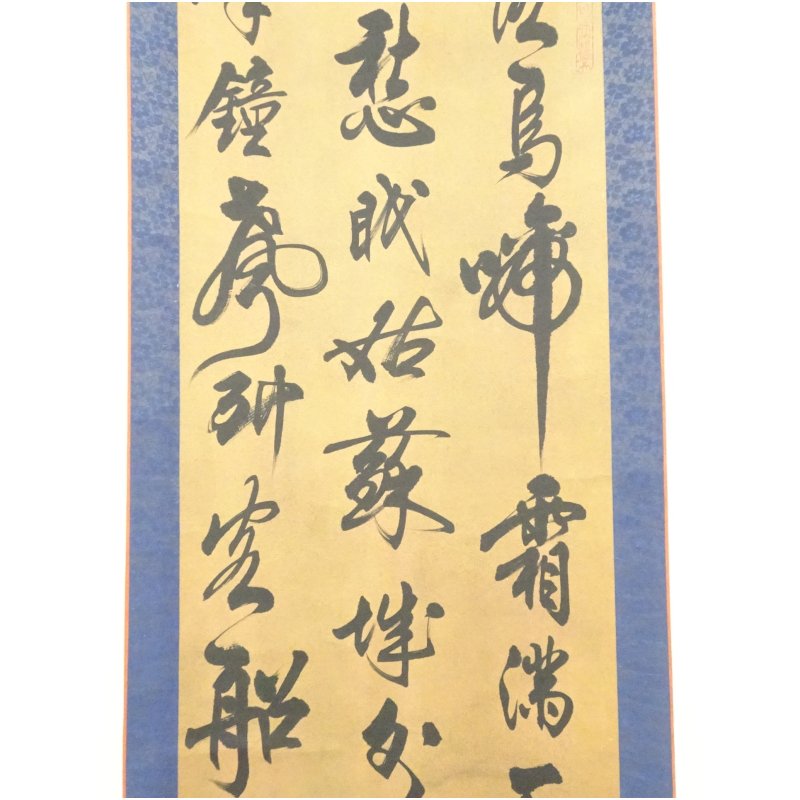 烏啼霜滿
愁眠姑蘇城外
鐘聲到客船